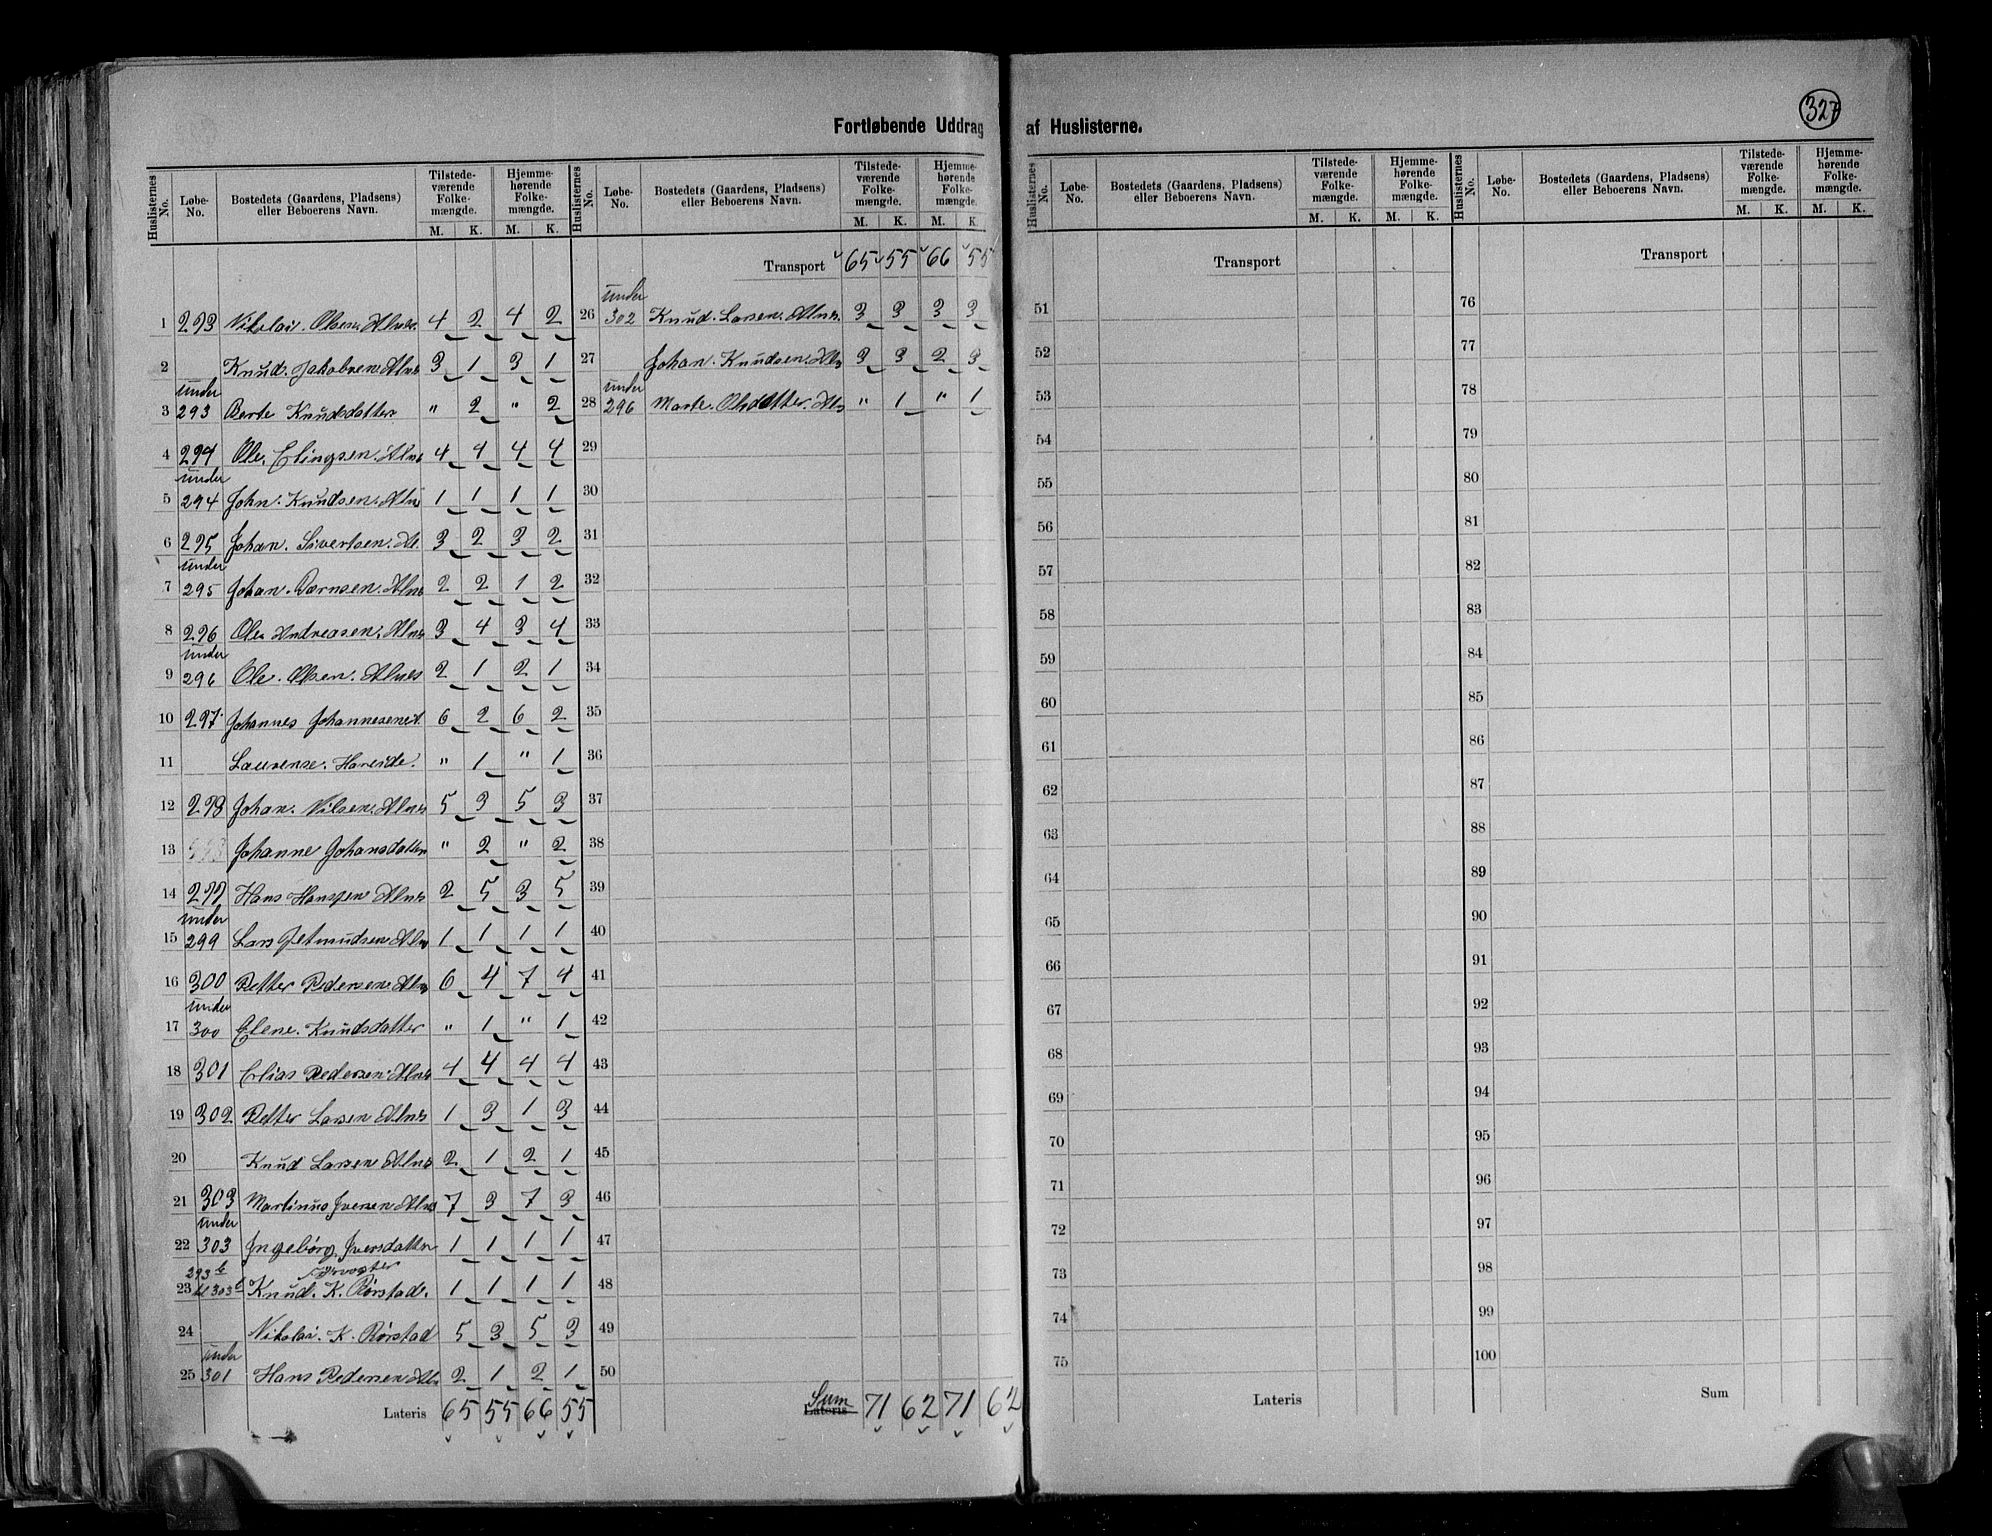 327
Fortløbende Uddrag af Huslisterne.
Huslisternes No. Løbe-No. Bostedets (Gaardens, Pladsens) eller Beboerens Navn. Tilstedeværende Folkemængde. M. K. Hjemmehørende Folkemængde. M. K.
1 293 Nikolai. Olsen. Alnes 4 2 4 2
2 Knud. Jakobsen. Alnes 3 1 3 1
3 under 293 Berte Knudsdatter " 2 " 2
4 294 Ole. Elingsen. Alnes 4 4 4 4
5 under 294 John. Knudsen. Alnes 1 1 1 1
6 295 Johan. Sivertsen. Al. 3 2 3 2
7 under 295 Johan. Alnes 2 2 1 2
8 296 Ole Andreasen. Alnes 3 4 3 4
9 under 296 Ole. Olsen. Alnes 2 1 2 1
10 297 Johannes Johannesen 6 2 6 2
11 Laurense. Hareide. " 1 " 1
12 298 Johan. Nilsen. Alnes 5 3 5 3
13 Johanne Johansdatter " 2 " 2
14 299 Hans Hansen Alnes 2 5 3 5
15 under 299 Lars Alnes 1 1 1 1
16 300 Petter Pedersen Alnes 6 4 7 4
17 under 300 Elene. Knudsdatter " 1 " 1
18 301 Elias Pedersen. Alnes 4 4 4 4
19 302 Petter Larsen Alnes 1 3 1 3
20 Knud Larsen Alnes 2 1 2 1
21 303 Martinus Iversen Alnes 7 3 7 3
22 under 303 Ingebørg. Iversdatter 1 1 1 1
23 293 b til 303 b Fyrvogter Knud. K. Rørstad. 1 1 1 1
24 Nikolai. K. Rørstad 5 3 5 3
25 under 301 Hans Pedersen Al 2 1 2 1
Lateris 65 55 66 55
Huslisternes No. Løbe-No. Bostedets (Gaardens, Pladsens) eller Beboerens Navn. Tilstedeværende Folkemængde. M. K. Hjemmehørende Folkemængde. M. K.
Transport 65 55 66 55
26 under 302 Knud. Larsen. Alnes. 3 3 3 3
27 Johan. Knudsen. Aln 3 3 2 3
28 under 296 Marte. Olsdatter. Al " 1 " 1
29
30
31
32
33
34
35
36
37
38
39
40
41
42
43
44
45
46
47
48
49
50
Lateris Sum 71 62 71 62
Huslisternes No. Løbe-No. Bostedets (Gaardens, Pladsens) eller Beboerens Navn. Tilstedeværende Folkemængde. M. K. Hjemmehørende Folkemængde. M. K.
Transport
51
52
53
54
55
56
57
58
59
60
61
62
63
64
65
66
67
68
69
70
71
72
73
74
75
Lateris
Huslisternes No. Løbe-No. Bostedets (Gaardens, Pladsens) eller Beboerens Navn. Tilstedeværende Folkemængde. M. K. Hjemmehørende Folkemængde. M. K.
Transport
76
77
78
79
80
81
82
83
84
85
86
87
88
89
90
91
92
93
94
95
96
97
98
99
100
Sum